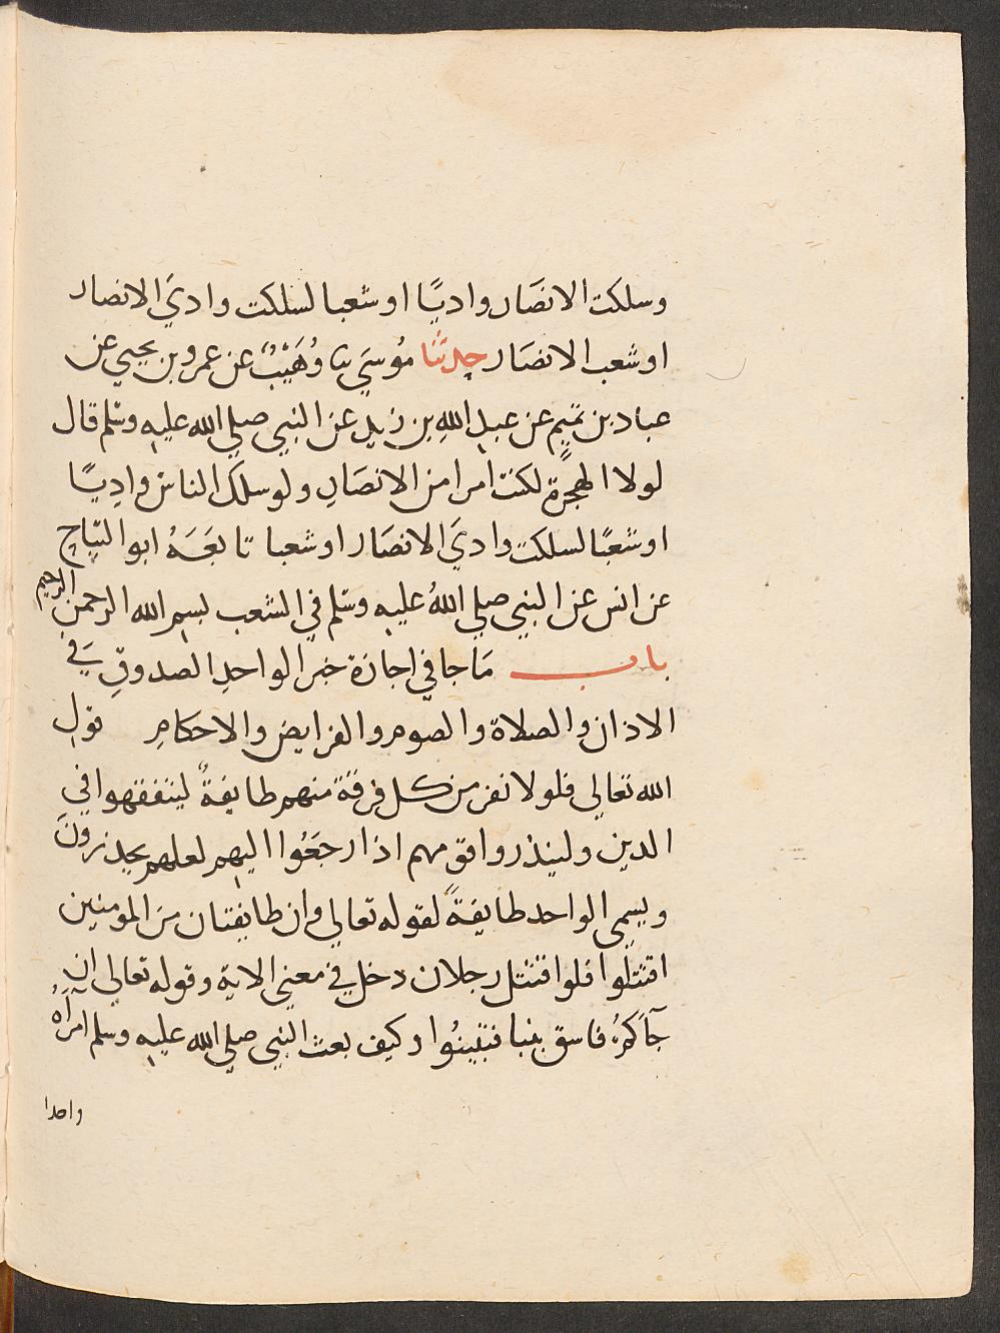 وسلكت الانصَار واديًا او شعبا لسلكت واديَ الانصار
او شعب الانصَار حدثنا مُوسَي ثنا وُهَيْبٌ عن عمرو بن يحيي عن
عباد بن تميم عن عبد اللهِ بن زيد عن النبي صلي الله عليه وسلم قال
لولا الهجرة لكنت امرا من الانصَارِ ولو سلك الناس وادِيًا
او شعبًا لسلكت واديَ الانصَار او شعبا تابعَهُ ابو التياح
عن انس عن النبي صلي اللهُ عليه وسلم في الشعب بسم الله الرحمن الرحيم
باب مَا جا في اجازة خبر الواحدِ الصدوقِ في
الاذان والصلاة والصوم والفرايض والاحكامِ قول
الله تعالي فلولا نفر من كل فرقة منهم طايفةٌ ليتفقهوا في
الدين ولينذروا قومهم اذا رجعُوا اليهم لعلهم يحذرونَ
ويسمي الواحد طايفةً لقوله تعالي وان طايفتان من المومنين
اقتتلُوا فلو اقتتل رجلان دخل في معني الاية وقوله تعالي ان
جآكمُ فاسق بنبا فتبينُوا وكيف بعث النبي صلي الله عليه وسلم امرآهُ
واحدا